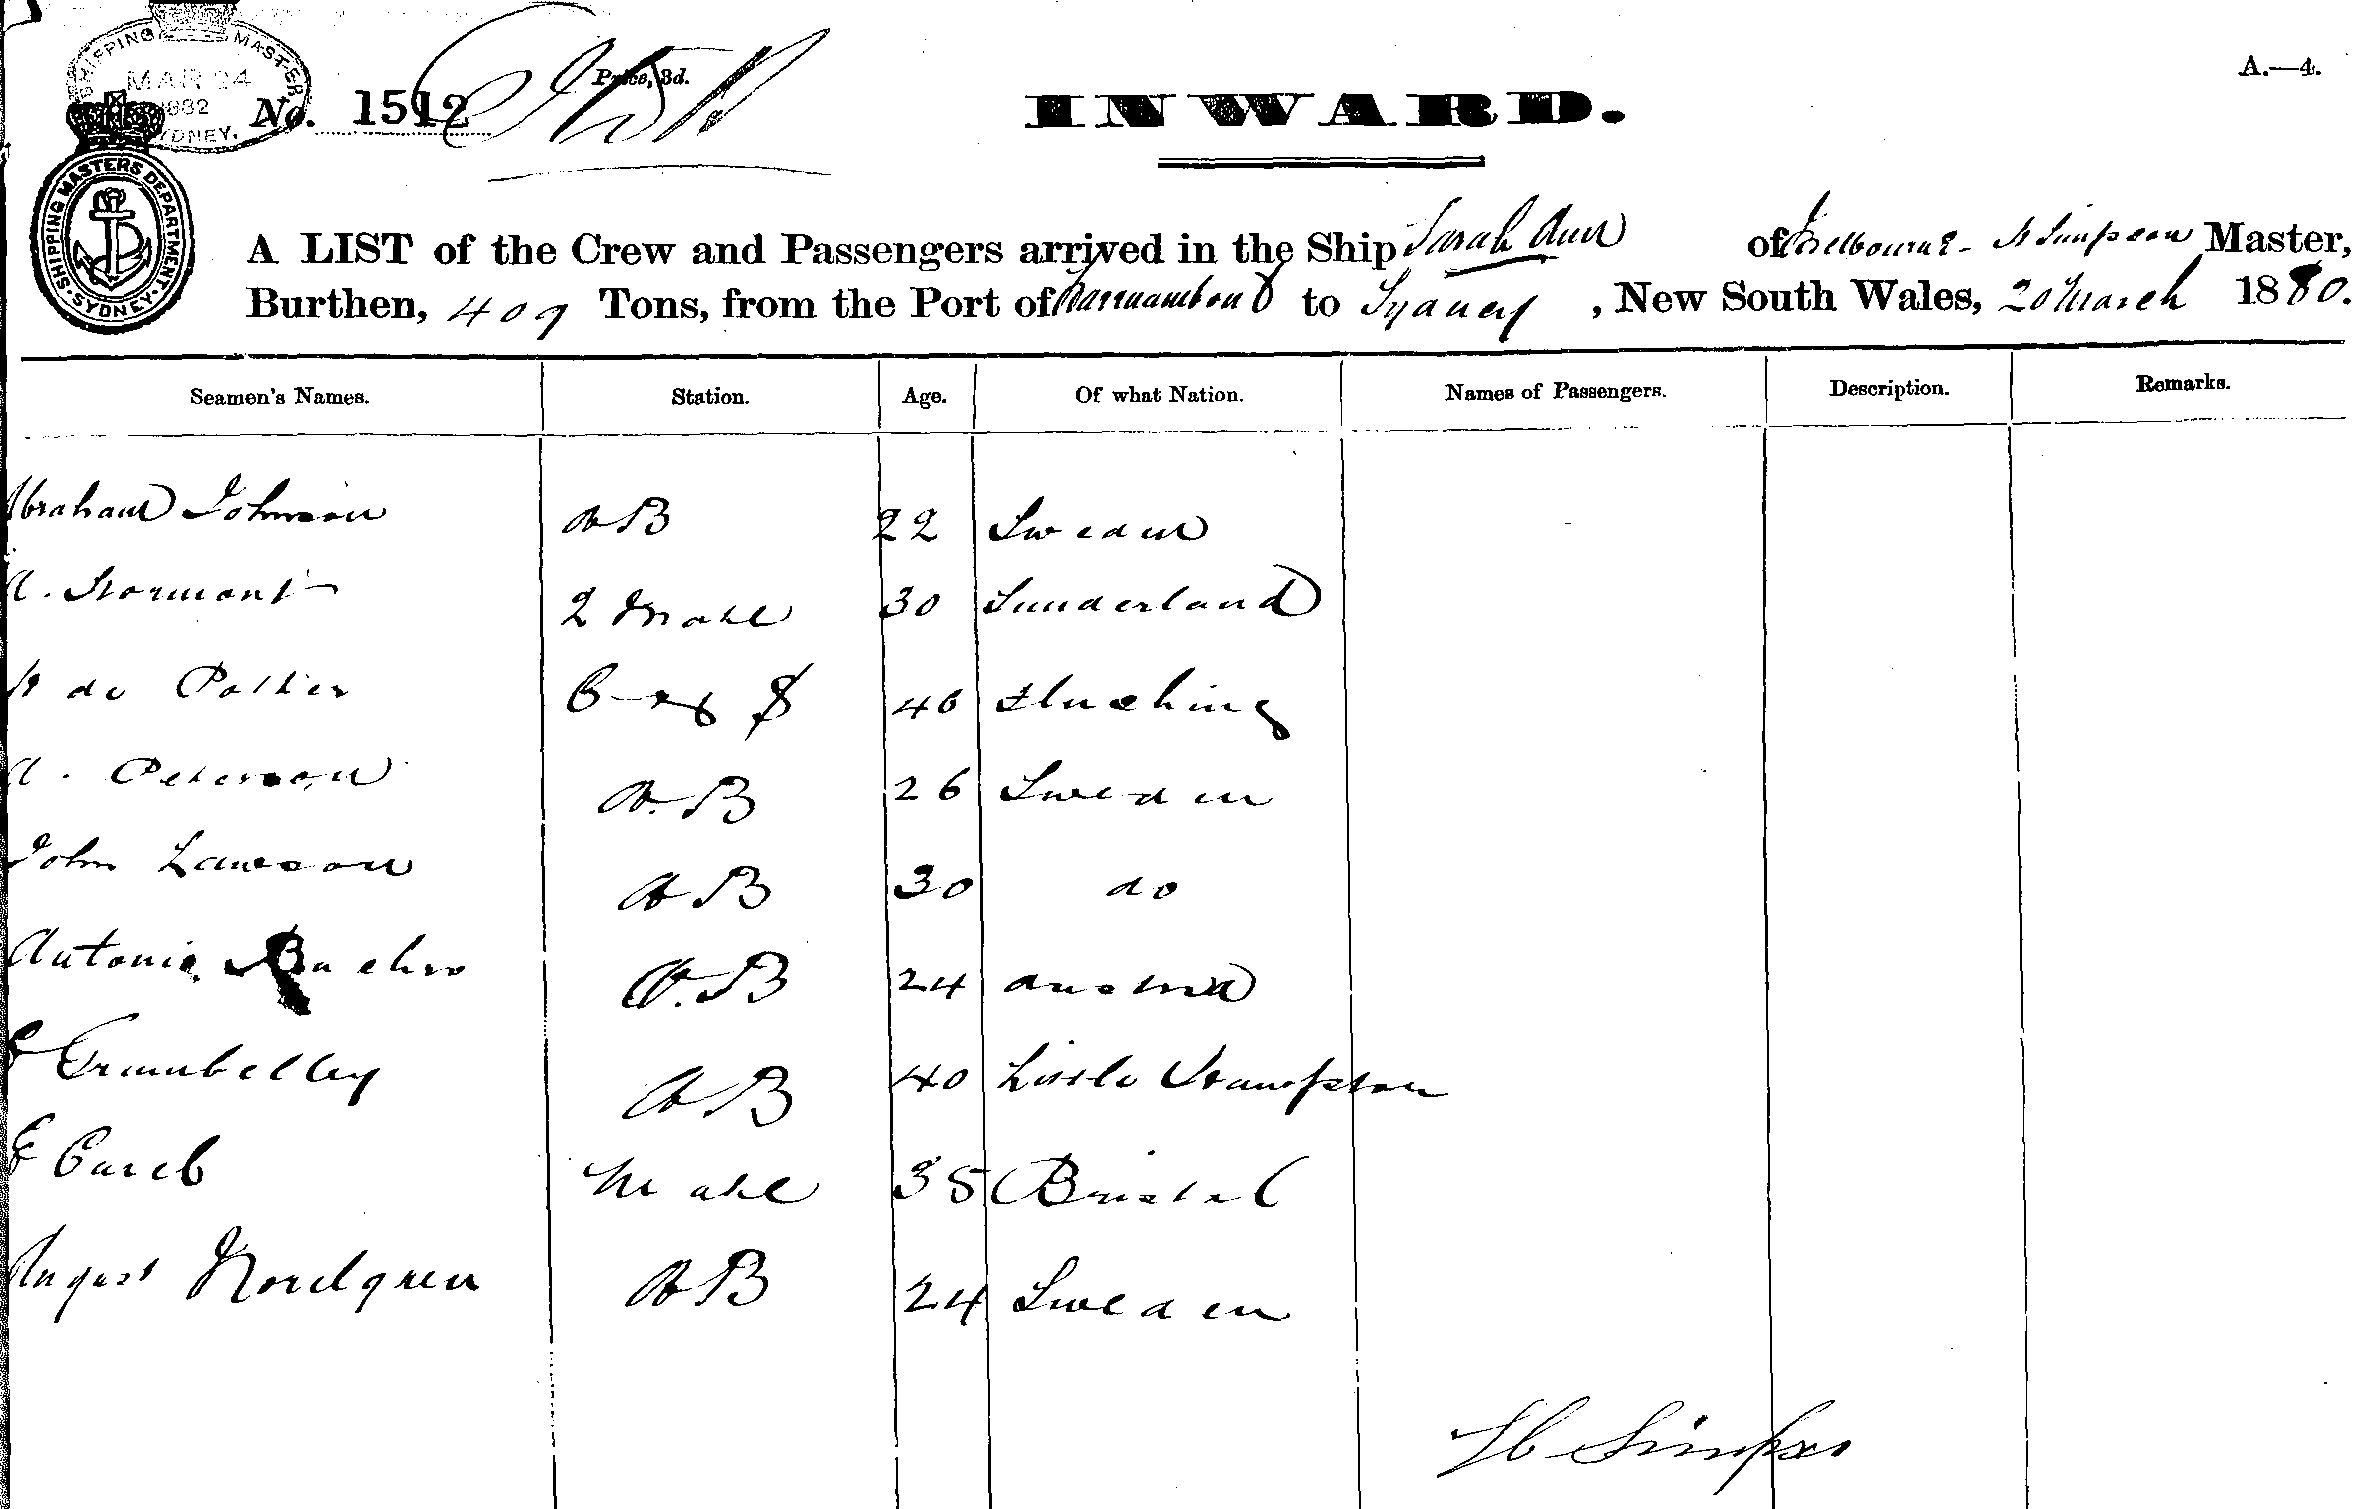 SHIPPING MASTER
MAR 24
1882
SYDNEY.
No. 1512
Price, 3d.
INWARD.
A.—4.
SHIPPING MASTERS DEPARTMENT. SYDNEY.
A LIST of the Crew and Passengers arrived in the Ship Sarah Ann of Melbourne - H Simpson Master,
Burthen, 409 Tons, from the Port of to Sydney, New South Wales, 20 March 1880.
Seamen's Names. Station. Age. Of what Nation. Names of Passengers. Description. Remarks.
Abraham Johnson AB 22 Sweden
A. Stormont 2 Mate 30 Sunderland
de 40 Flushing
A. Peterson A.B 26 Sweden
John Lawson AB 30 do
Antonio A.B 24 Austria
AB 40 Little Hampton
Mate 35 Bristol
August Nordgren AB 24 Sweden
H Simpson